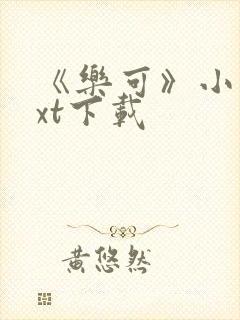 《樂可》小
xt下載
黄悠然